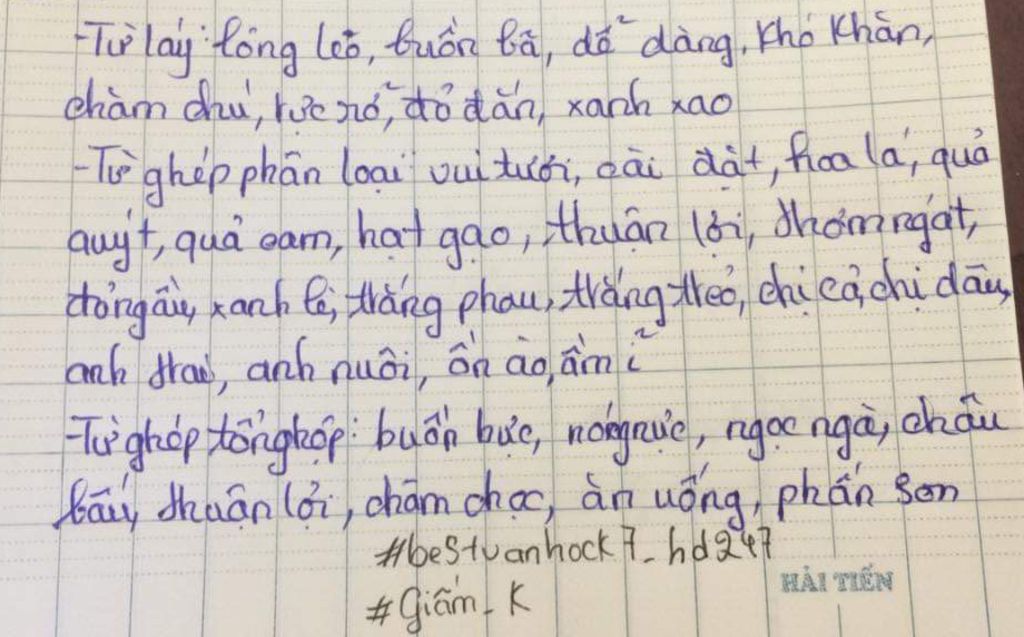 -Từ láy: lóng leo, buồn bã, dễ dàng, khó khăn,
chăm chú, rực rỡ, đỏ đắn, xanh xao
-Từ ghép phân loại: vui tươi, cài đặt, hoa lá, quả
quýt, quả cam, hạt gạo, thuận lợi, thơm ngát,
đỏ ngầu, xanh lè, trắng phau, trắng trẻo, chị cả, chị dâu,
anh trai, anh nuôi, ồn ào, ầm ĩ
-Từ ghép tổng hợp: buồn bực, nóng nực, ngọc ngà, châu
báu, thuận lợi, châm chọc, ăn uống, phấn son
#bestvanhock7_hd247
#Giấm_K
HẢI TIẾN